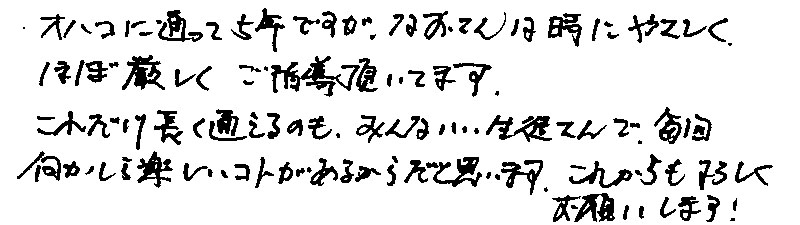 ・オハコに通って5年ですが、なおさんは時にやさしく、
ほぼ厳しくご指導頂いてます。
これだけ長く通えるのも、みんないい生徒さんで、毎回
何かしら楽しいコトがあるからだと思います。これからも宜しく
お願いします!